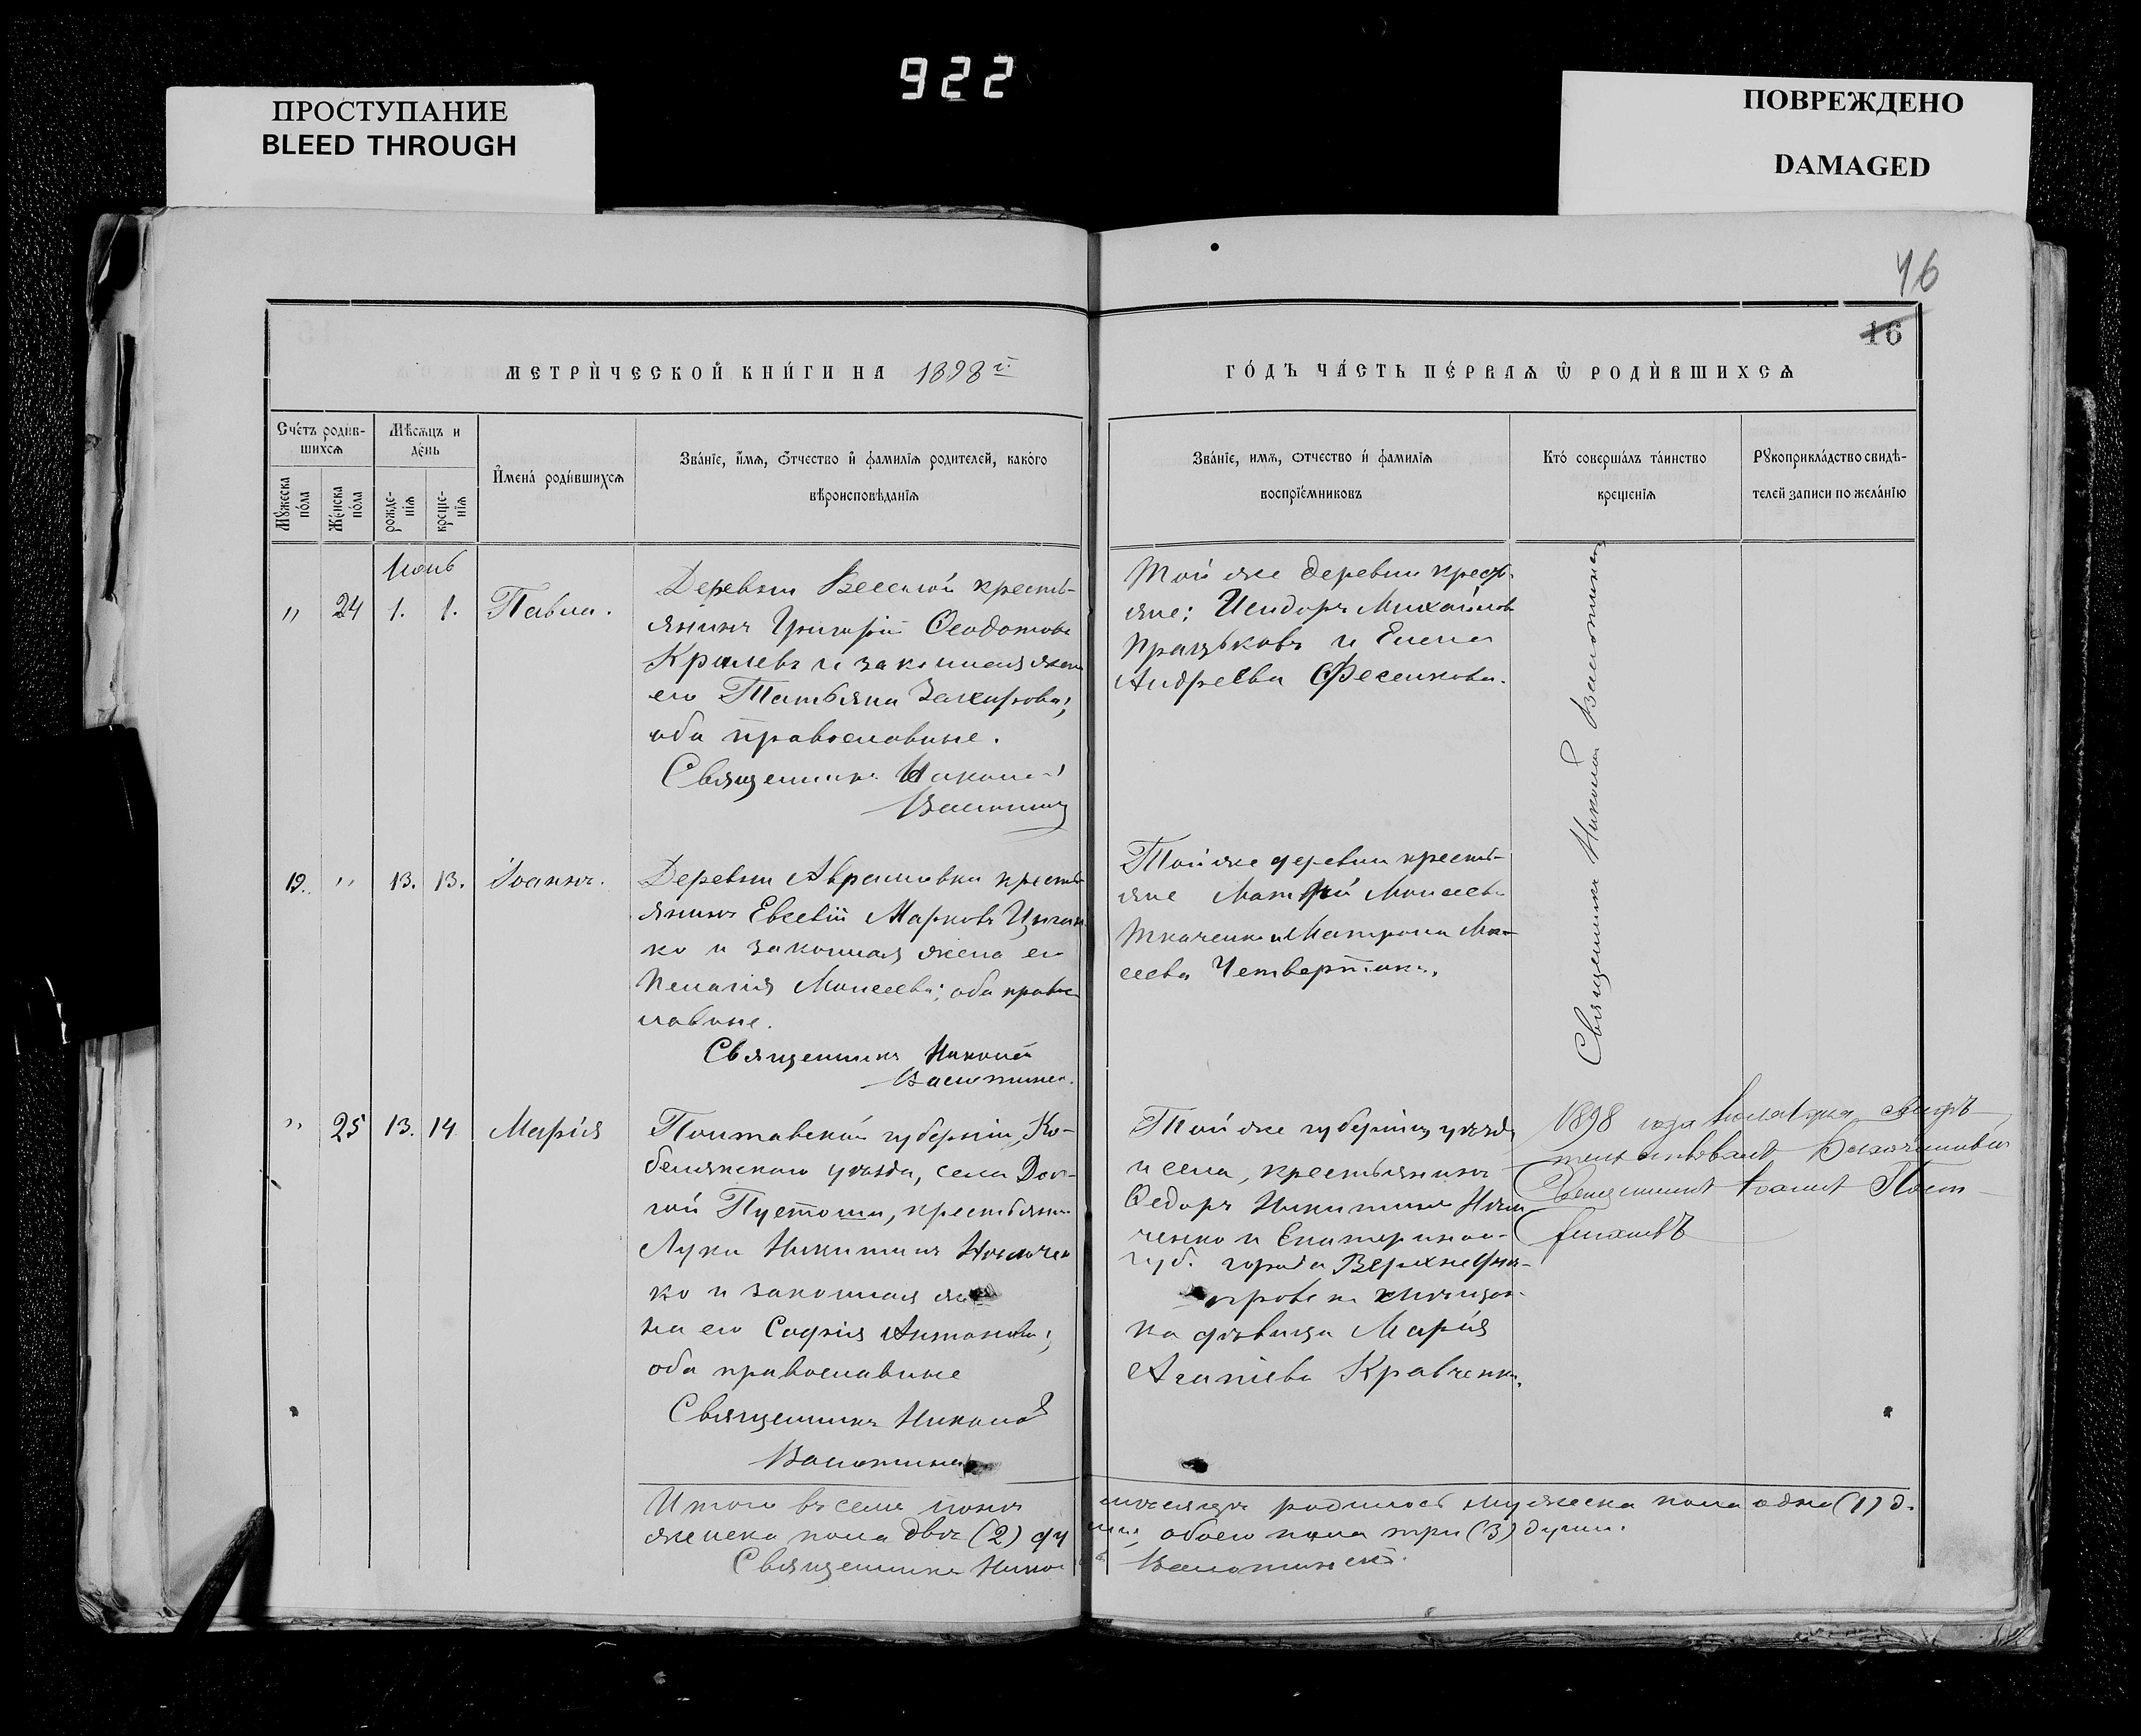 922
ПРОСТУПАНИЕ
BLEED THROUGH
ПОВРЕЖДЕНО
DAMAGED
46
16
МЕТРИ́ЧЕСКОЙ КНИ́ГИ НА 1898 г.
ГО́ДЪ ЧА́СТЬ ПЕ́РВАѦ Ѡ РОДИ́ВШИХСѦ
Сче́тъ роди́в-
шихсѧ
Мꙋ́жеска по́ла
Же́нска по́ла
Мѣ́сѧцъ и
де́нь
рожде-
нїѧ
креще-
нїѧ
И҆мена̀ роди́вшихсѧ
Зва́нїе, и҆́мѧ, ѻ҆́тчество и҆ фами́лїѧ родителей, како́го
вѣроисповѣ́данїѧ
Зва́нїе, имѧ, ѻтчество и҆ фами́лїѧ
воспрїе́мниковъ
Кто̀ соверша́лъ та́инство
креще́нїѧ
Рꙋкоприкла́дство свидѣ́-
телей записи по жела́нїю
Іюнь
" 24 1. 1. Павла.
Деревни Веселой кресть-
янинъ Григорій Ѳеодотовъ
Кралевъ и законная жена
его Татьяна Захарова;
оба православные.
Священникъ Николай
Той же деревни кресть-
яне: Исидоръ Михайловъ
и Елена
Андреева Фесенкова.
Священникъ Николай
19. " 13. 13. Іоаннъ.
Деревни Аврамовки кресть-
янинъ Евсевій Марковъ Цыган-
ко и законная жена его
Пелагія Моисеева; оба правос-
лавные.
Священникъ Николай
Той же деревни кресть-
яне Матѳій Моисеевъ
Ткаченко и Матрона Мои-
сеева
" 25 13. 14 Марія
Полтавской губерніи, Ко-
белякскаго уѣзда, села Дол-
гой Пустоши, крестьянинъ
Лука Никитинъ
ко и законная же-
на его Софія Антонова;
оба православные
Священникъ Николай
Той же губерніи, уѣзда
и села, крестьянинъ
Ѳедоръ Никитинъ
ченко и Екатериносл-
губ. города Верхнеднѣ-
провска мѣщан-
ка дѣвица Марія
Агапіева Кравченко.
1898 года
Священникъ Іоаннъ
Итого въ семъ іюнѣ мѣсяцѣ родилось мужеска пола одна (1) д.
женска пола двѣ (2) души, обоего пола три (3) души.
Священникъ Николай